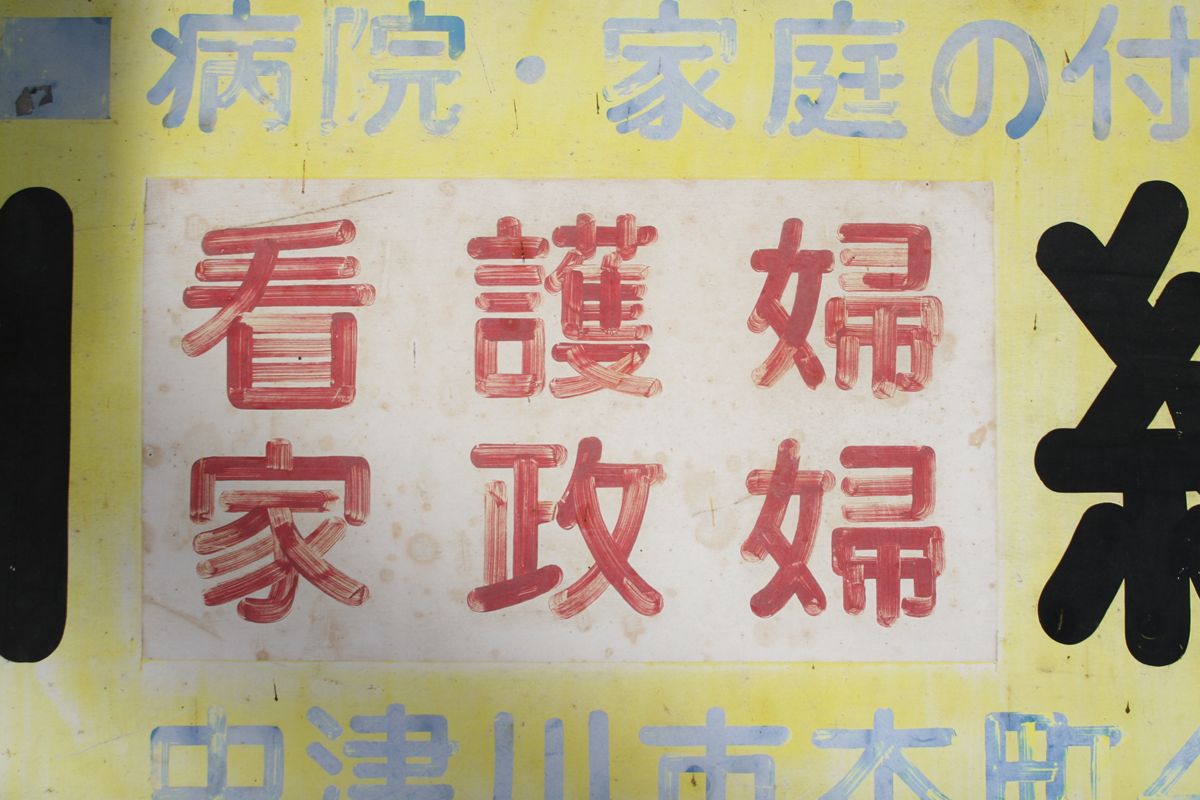 病院・家庭の付
看護婦
家政婦
中津川市本町